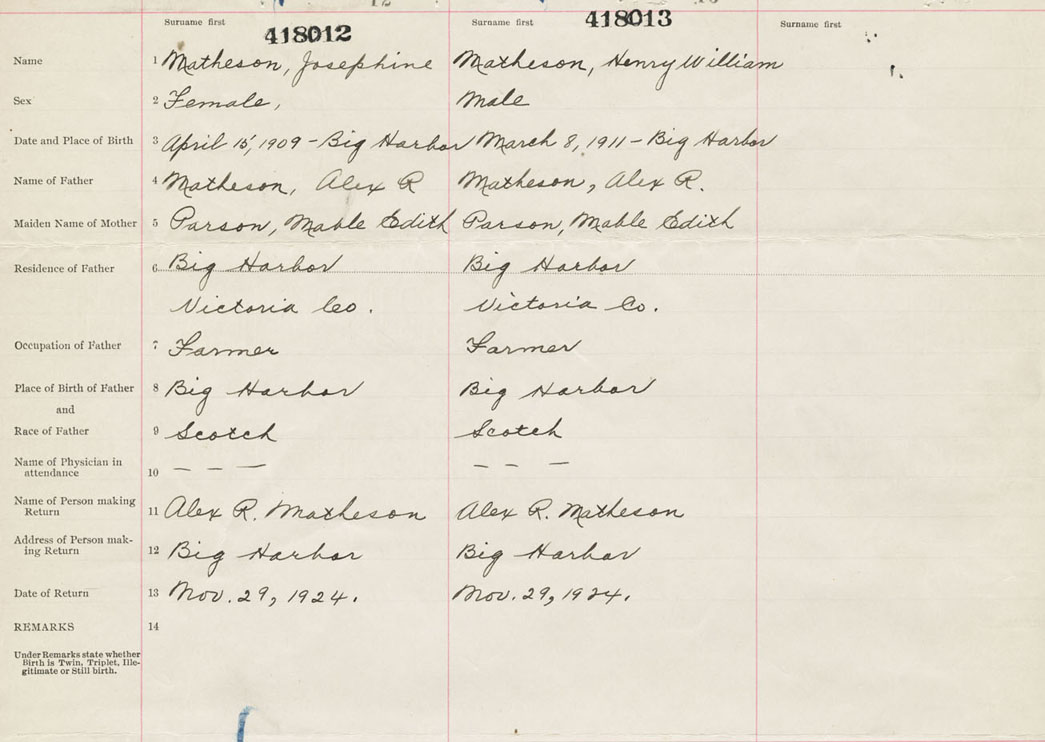 Surname first Surname first Surname first
418012 418013
Name 1 Matheson, Josephine Matheson, Henry William
Sex 2 Female, Male
Date and Place of Birth 3 April 15, 1909 - Big Harbor March 8, 1911 - Big Harbor
Name of Father 4 Matheson, Alex R Matheson, Alex R.
Maiden Name of Mother 5 Parson, Mable Edith Parson, Mable Edith
Residence of Father 6 Big Harbor Big Harbor
Victoria Co. Victoria Co.
Occupation of Father 7 Farmer Farmer
Place of Birth of Father 8 Big Harbor Big Harbor
and
Race of Father 9 Scotch Scotch
Name of Physician in
attendance 10 — — — — — —
Name of Person making
Return 11 Alex R. Matheson Alex R. Matheson
Address of Person mak-
ing Return 12 Big Harbor Big Harbor
Date of Return 13 Nov. 29, 1924. Nov. 29, 1924.
REMARKS 14
Under Remarks state whether
Birth is Twin, Triplet, Ille-
gitimate or Still birth.